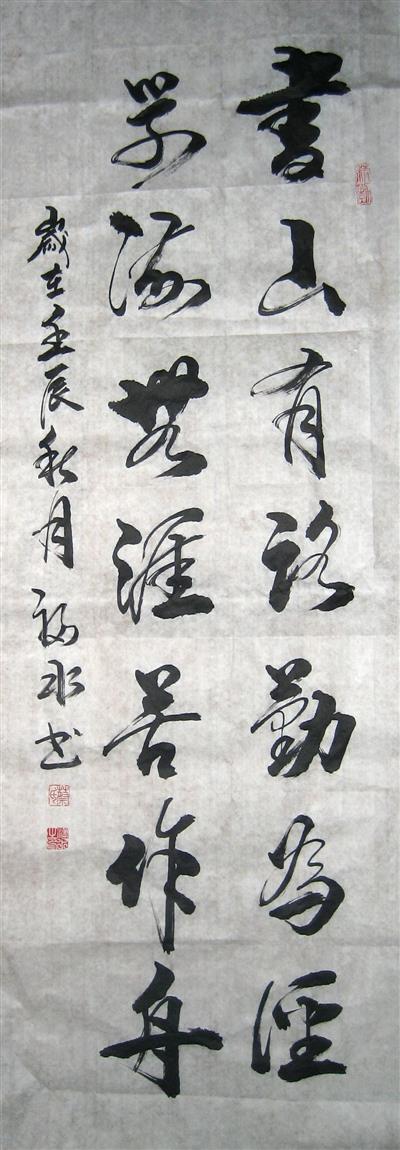 書山有路勤為徑
學海無涯苦作舟
歲在壬辰秋月福水书